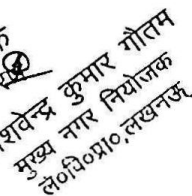 कुमार गौतम
मुख्य नगर नियोजक
ल०वि०प्रा०,लखनऊ